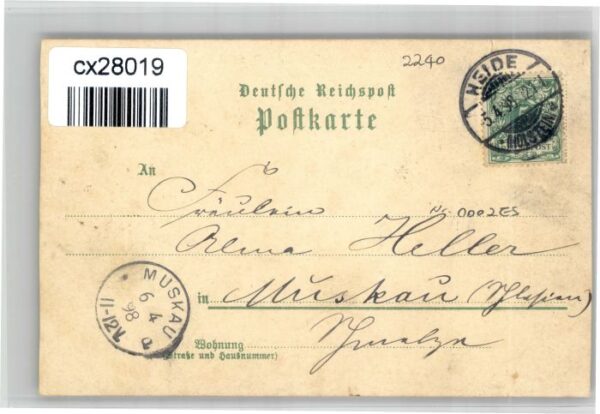 cx28019
2240
Deutsche Reichspost
Postkarte
HEIDE
5.4.98
*(HOLSTEIN)*
POST
An
Fräulein
Nr. 0002ES
Alma Heller
in Muskau (Schlesien)
MUSKAU
6 4
98
11-12V.
Wohnung
(Straße und Hausnummer)